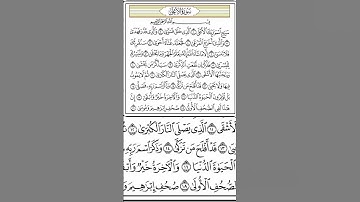 سُورَةُ الأَعْلَىٰ
بِسْمِ ٱللَّهِ ٱلرَّحْمَٰنِ ٱلرَّحِيمِ
سَبِّحِ ٱسْمَ رَبِّكَ ٱلْأَعْلَى ١ ٱلَّذِي خَلَقَ فَسَوَّىٰ ٢ وَٱلَّذِي قَدَّرَ فَهَدَىٰ
٣ وَٱلَّذِي أَخْرَجَ ٱلْمَرْعَىٰ ٤ فَجَعَلَهُۥ غُثَآءً أَحْوَىٰ ٥ سَنُقْرِئُكَ
فَلَا تَنسَىٰ ٦ إِلَّا مَا شَآءَ ٱللَّهُ إِنَّهُۥ يَعْلَمُ ٱلْجَهْرَ وَمَا يَخْفَىٰ ٧ وَنُيَسِّرُكَ
لِلْيُسْرَىٰ ٨ فَذَكِّرْ إِن نَّفَعَتِ ٱلذِّكْرَىٰ ٩ سَيَذَّكَّرُ مَن يَخْشَىٰ ١٠
وَيَتَجَنَّبُهَا ٱلْأَشْقَى ١١ ٱلَّذِي يَصْلَى ٱلنَّارَ ٱلْكُبْرَىٰ ١٢ ثُمَّ لَا يَمُوتُ فِيهَا
وَلَا يَحْيَىٰ ١٣ قَدْ أَفْلَحَ مَن تَزَكَّىٰ ١٤ وَذَكَرَ ٱسْمَ رَبِّهِۦ فَصَلَّىٰ ١٥
بَلْ تُؤْثِرُونَ ٱلْحَيَوٰةَ ٱلدُّنْيَا ١٦ وَٱلْءَاخِرَةُ خَيْرٌ وَأَبْقَىٰ ١٧ إِنَّ هَٰذَا
لَفِي ٱلصُّحُفِ ٱلْأُولَىٰ ١٨ صُحُفِ إِبْرَٰهِيمَ وَمُوسَىٰ ١٩
لْأَشْقَى ١١ ٱلَّذِي يَصْلَى ٱلنَّارَ ٱلْكُبْرَىٰ ١٢
١٣ قَدْ أَفْلَحَ مَن تَزَكَّىٰ ١٤ وَذَكَرَ ٱسْمَ رَبِّهِۦ
ٱلْحَيَوٰةَ ٱلدُّنْيَا ١٦ وَٱلْءَاخِرَةُ خَيْرٌ وَأَبْ
لصُّحُفِ ٱلْأُولَىٰ ١٨ صُحُفِ إِبْرَٰهِيمَ وَ